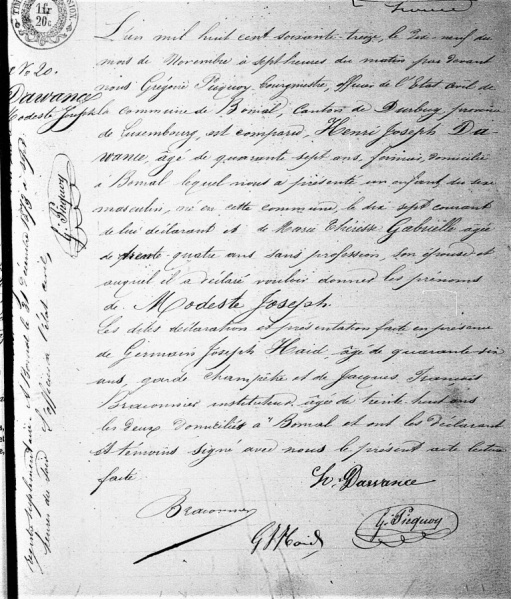 1 fr
20 c
No 20.
Darwance
Modeste Joseph
G. Picquoy
L'an mil huit cent soixante-treize, le dix neuf du
mois de Novembre à sept heures du matin par devant
nous Grégoire Picquoy bourgmestre, officier de l'Etat civil de
la commune de Bomal, Canton de Durbuy, province
de Luxembourg, est comparu, Henri Joseph Da-
wance, âgé de quarante sept ans, domicilié
à Bomal lequel nous a présenté un enfant du sexe
masculin, né en cette commune, le dix sept courant
de lui déclarant et de Marie Thérèse Gabrielle âgée
de trente quatre ans sans profession, son épouse et
auquel il a déclaré vouloir donner les prénoms
de Modeste Joseph.
Les dites déclaration et présentation faite en présence
de Germain Joseph Haid, âgé de quarante six
ans, garde champêtre et de Jacques François
Braconnier instituteur, âgé de trente huit ans
les deux domiciliés à Bomal et ont les déclarant
et témoins signé avec nous le présent acte lecture
faite
h. Darwance
Braconnier
G J Haid
G. Picquoy